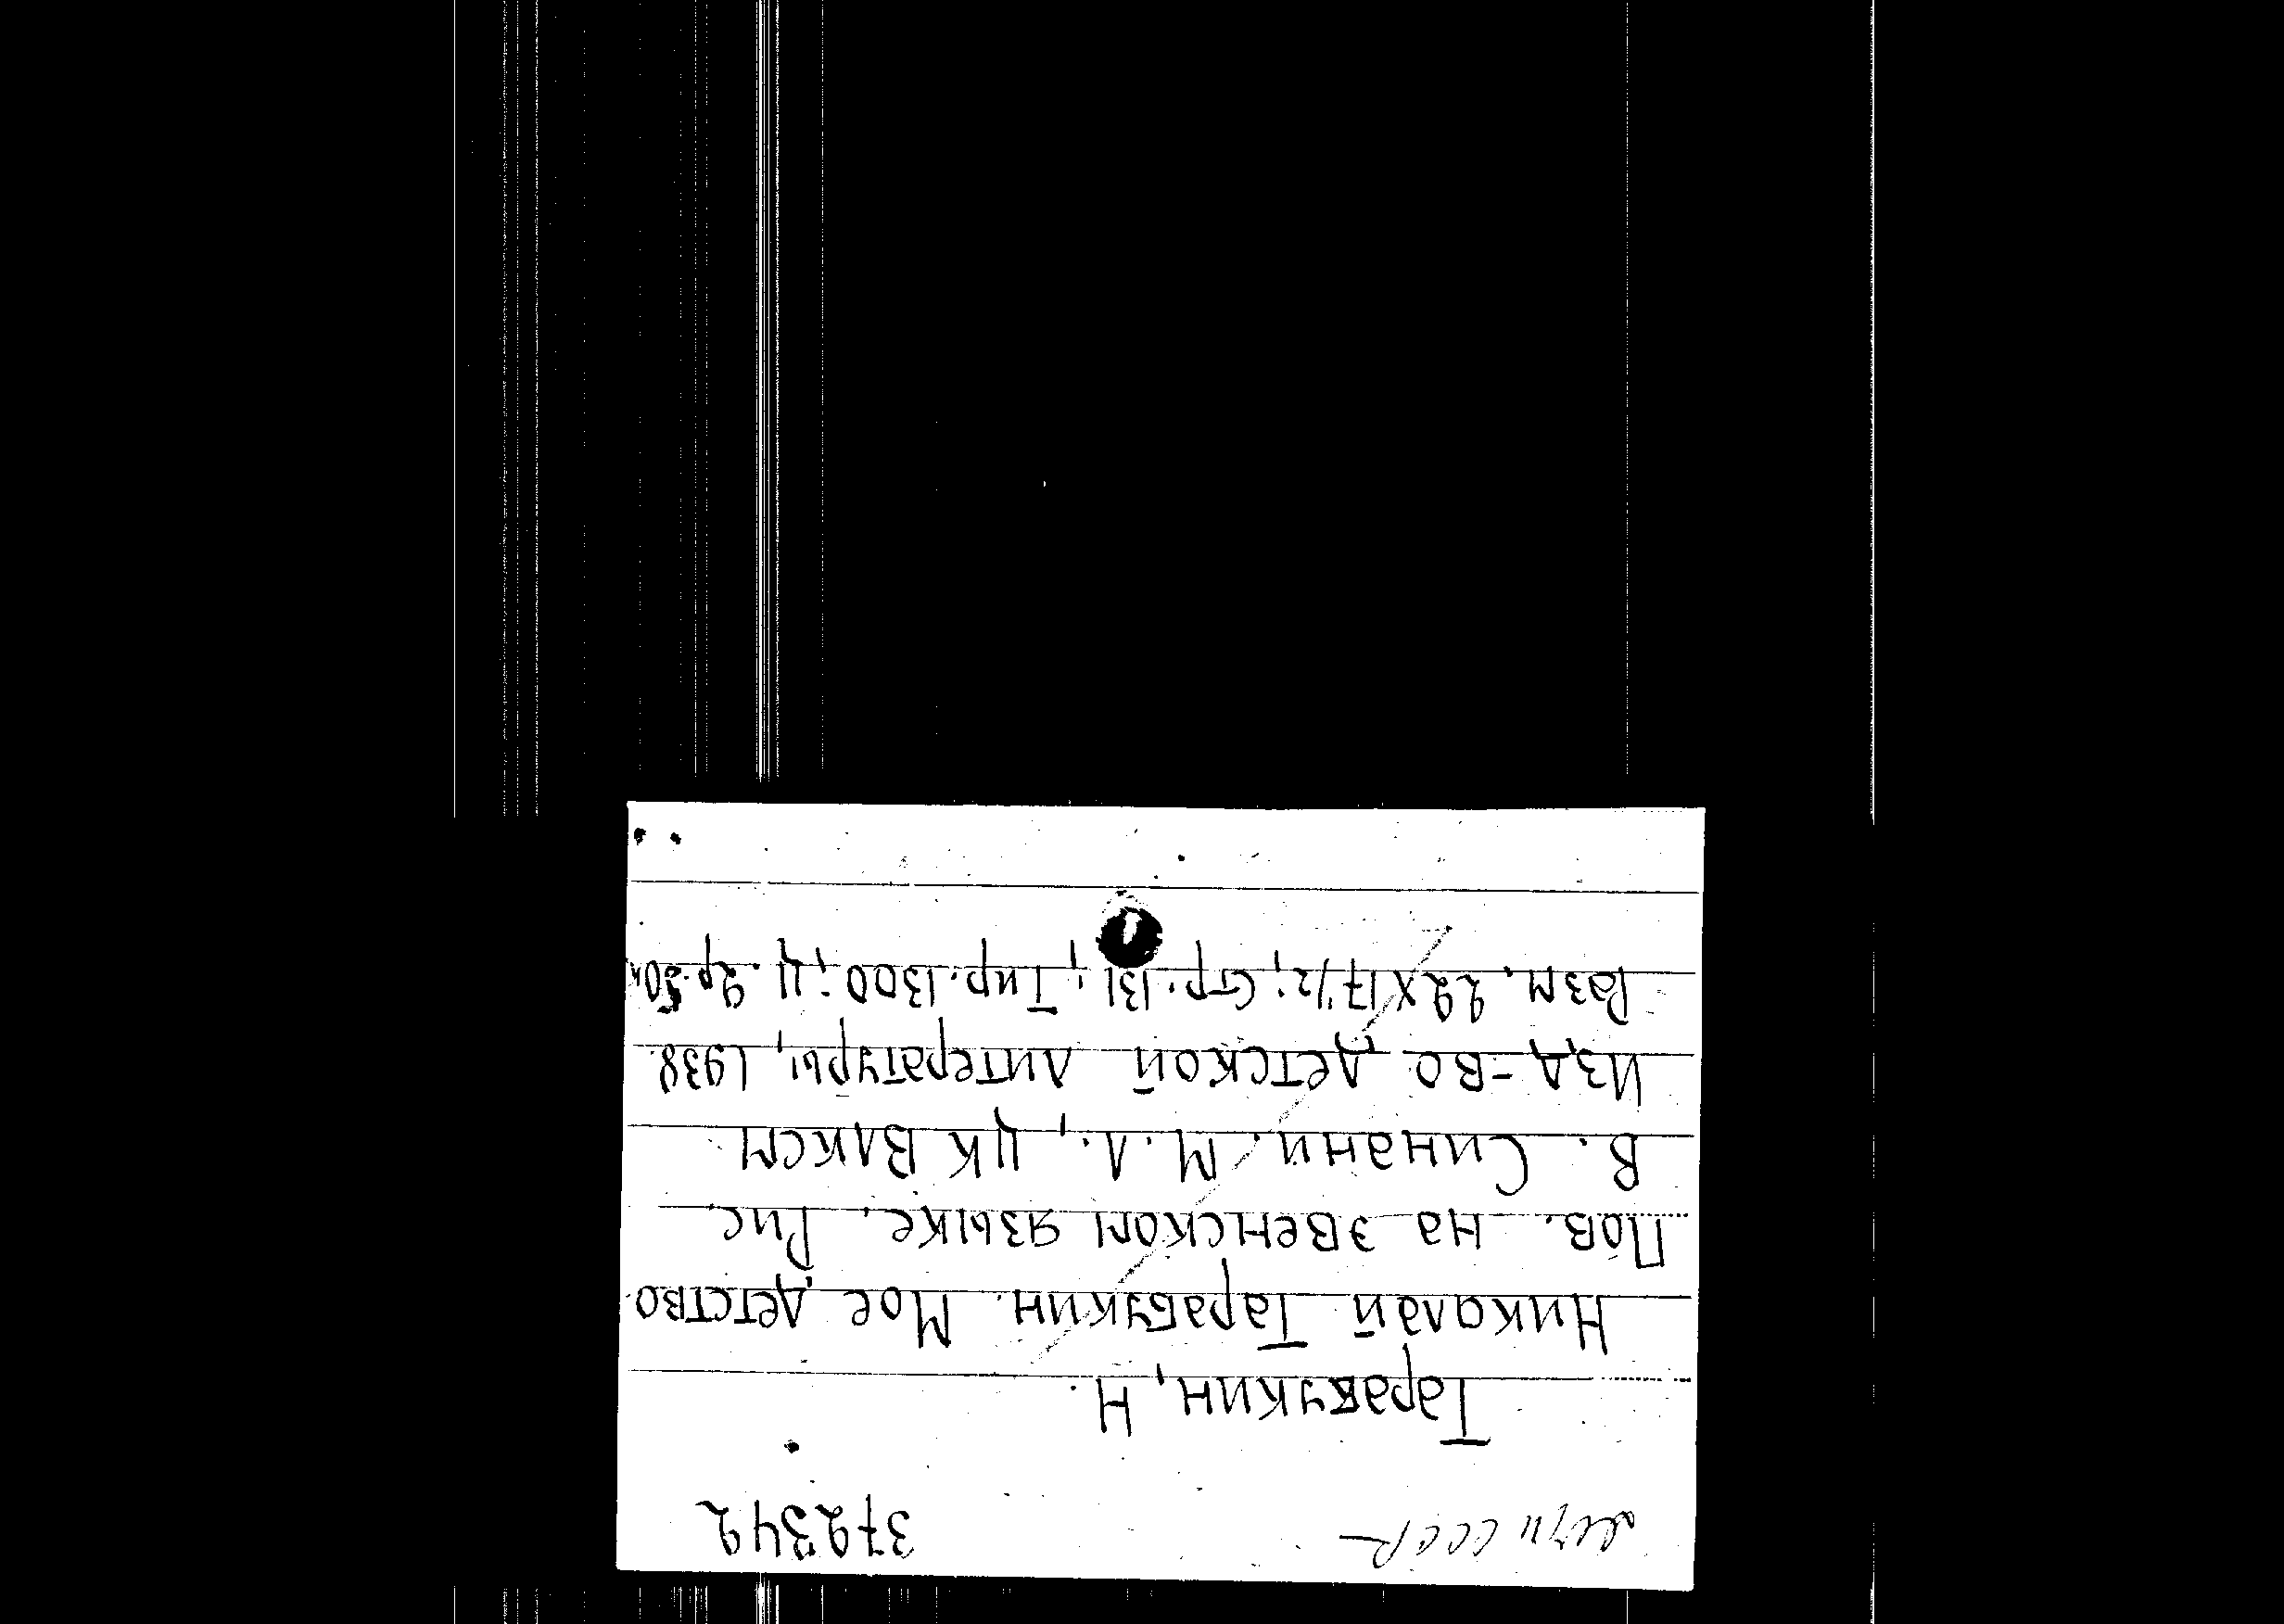 СССР 372342
Тарабукин, Н.
Николай Тарабукин. Мое детство
Пов. на эвенском языке. Рис.
В. Синани. М. Л., ЦК ВЛКСМ
Изд-во детской литературы, 1938.
Разм. 22х17 1/2; Стр. 131; Тир. 1300; Ц. 2р. 50к